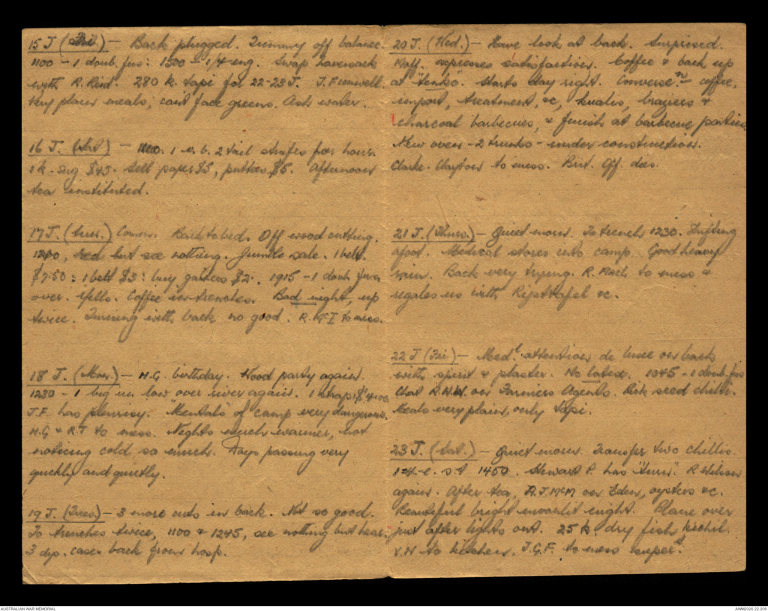 15 J (Fri) - Back plugged. Tummy off balance.
1100 - 1 doub. fus: 1500 - 1 4-eng. Swap haversack
with R. Bird. 280 k. tapi for 22-23 J. J.F. unwell.
Very plain meals, can't face greens. Ash water.
16 J. (Sat) - 1100. 1 - 2 tail for hours.
1 k. sug $45. Sell paper $5, puttees $5. Afternoon
tea instituted.
17 J. (Sun.) Comm. Back to bed. Off wood cutting.
1200, Red but see nothing. Jumble sale. 1 belt
$7.50: 1 belt $3: buy gaiters $2. 1915 - 1 doub fus
over. Yells. Coffee in trenches. Bad night, up
twice. Turning with back no good. R. to mess.
18 J. (Mon.) - H.G. birthday. Wood party again.
1230 - 1 big un low over river again. 1 $400
J.F. has pleurisy. Mentals of camp very dangerous.
H.G & R.T to mess. Nights much warmer, not
noticing cold so much. Days passing very
quickly and quietly.
19 J. (Tues) - 3 more cuts in back. Not so good.
To trenches twice, 1100 & 1245, see nothing but hear.
3 dip. cases back from hosp.
20 J. (Wed.) - Have look at back. Surprised.
Kaff. expresses satisfaction. Coffee & back up
at "tenko". Starts day right. Converse on coffee,
import, treatment &c, kualis, braziers &
charcoal barbecues, & finish at barbecue parties.
New oven - 2 trunks - under construction.
Clarke-Claytons to mess. Brit. Off. do's.
21 J. (Thurs.) - Quiet morn. To trench 1230. Shifting
afoot. Medical stores into camp. Good heavy
rain. Back very trying. R. to mess &
regales us with Rijsttafel &c.
22 J (Fri) - Med.l attentions de luxe on back
with spirit & plaster. No latex. 1045 - 1 doub. fus
Chat R.H.W. on Farmers Agents. Pick seed chillis.
Meals very plain, only tapi.
23 J. (Sat.) - Quiet morn. Transfer two chillis.
1 x 4-e. s.t 1450. Stewart P. has "turn". R
again. After tea, D.J. McM on Eden, oysters &c.
Beautiful bright moonlit night. Plane over
just after lights out. 25 k. dry fish,
V.H to kitchen. J.G.F. to mess super.
AUSTRALIAN WAR MEMORIAL